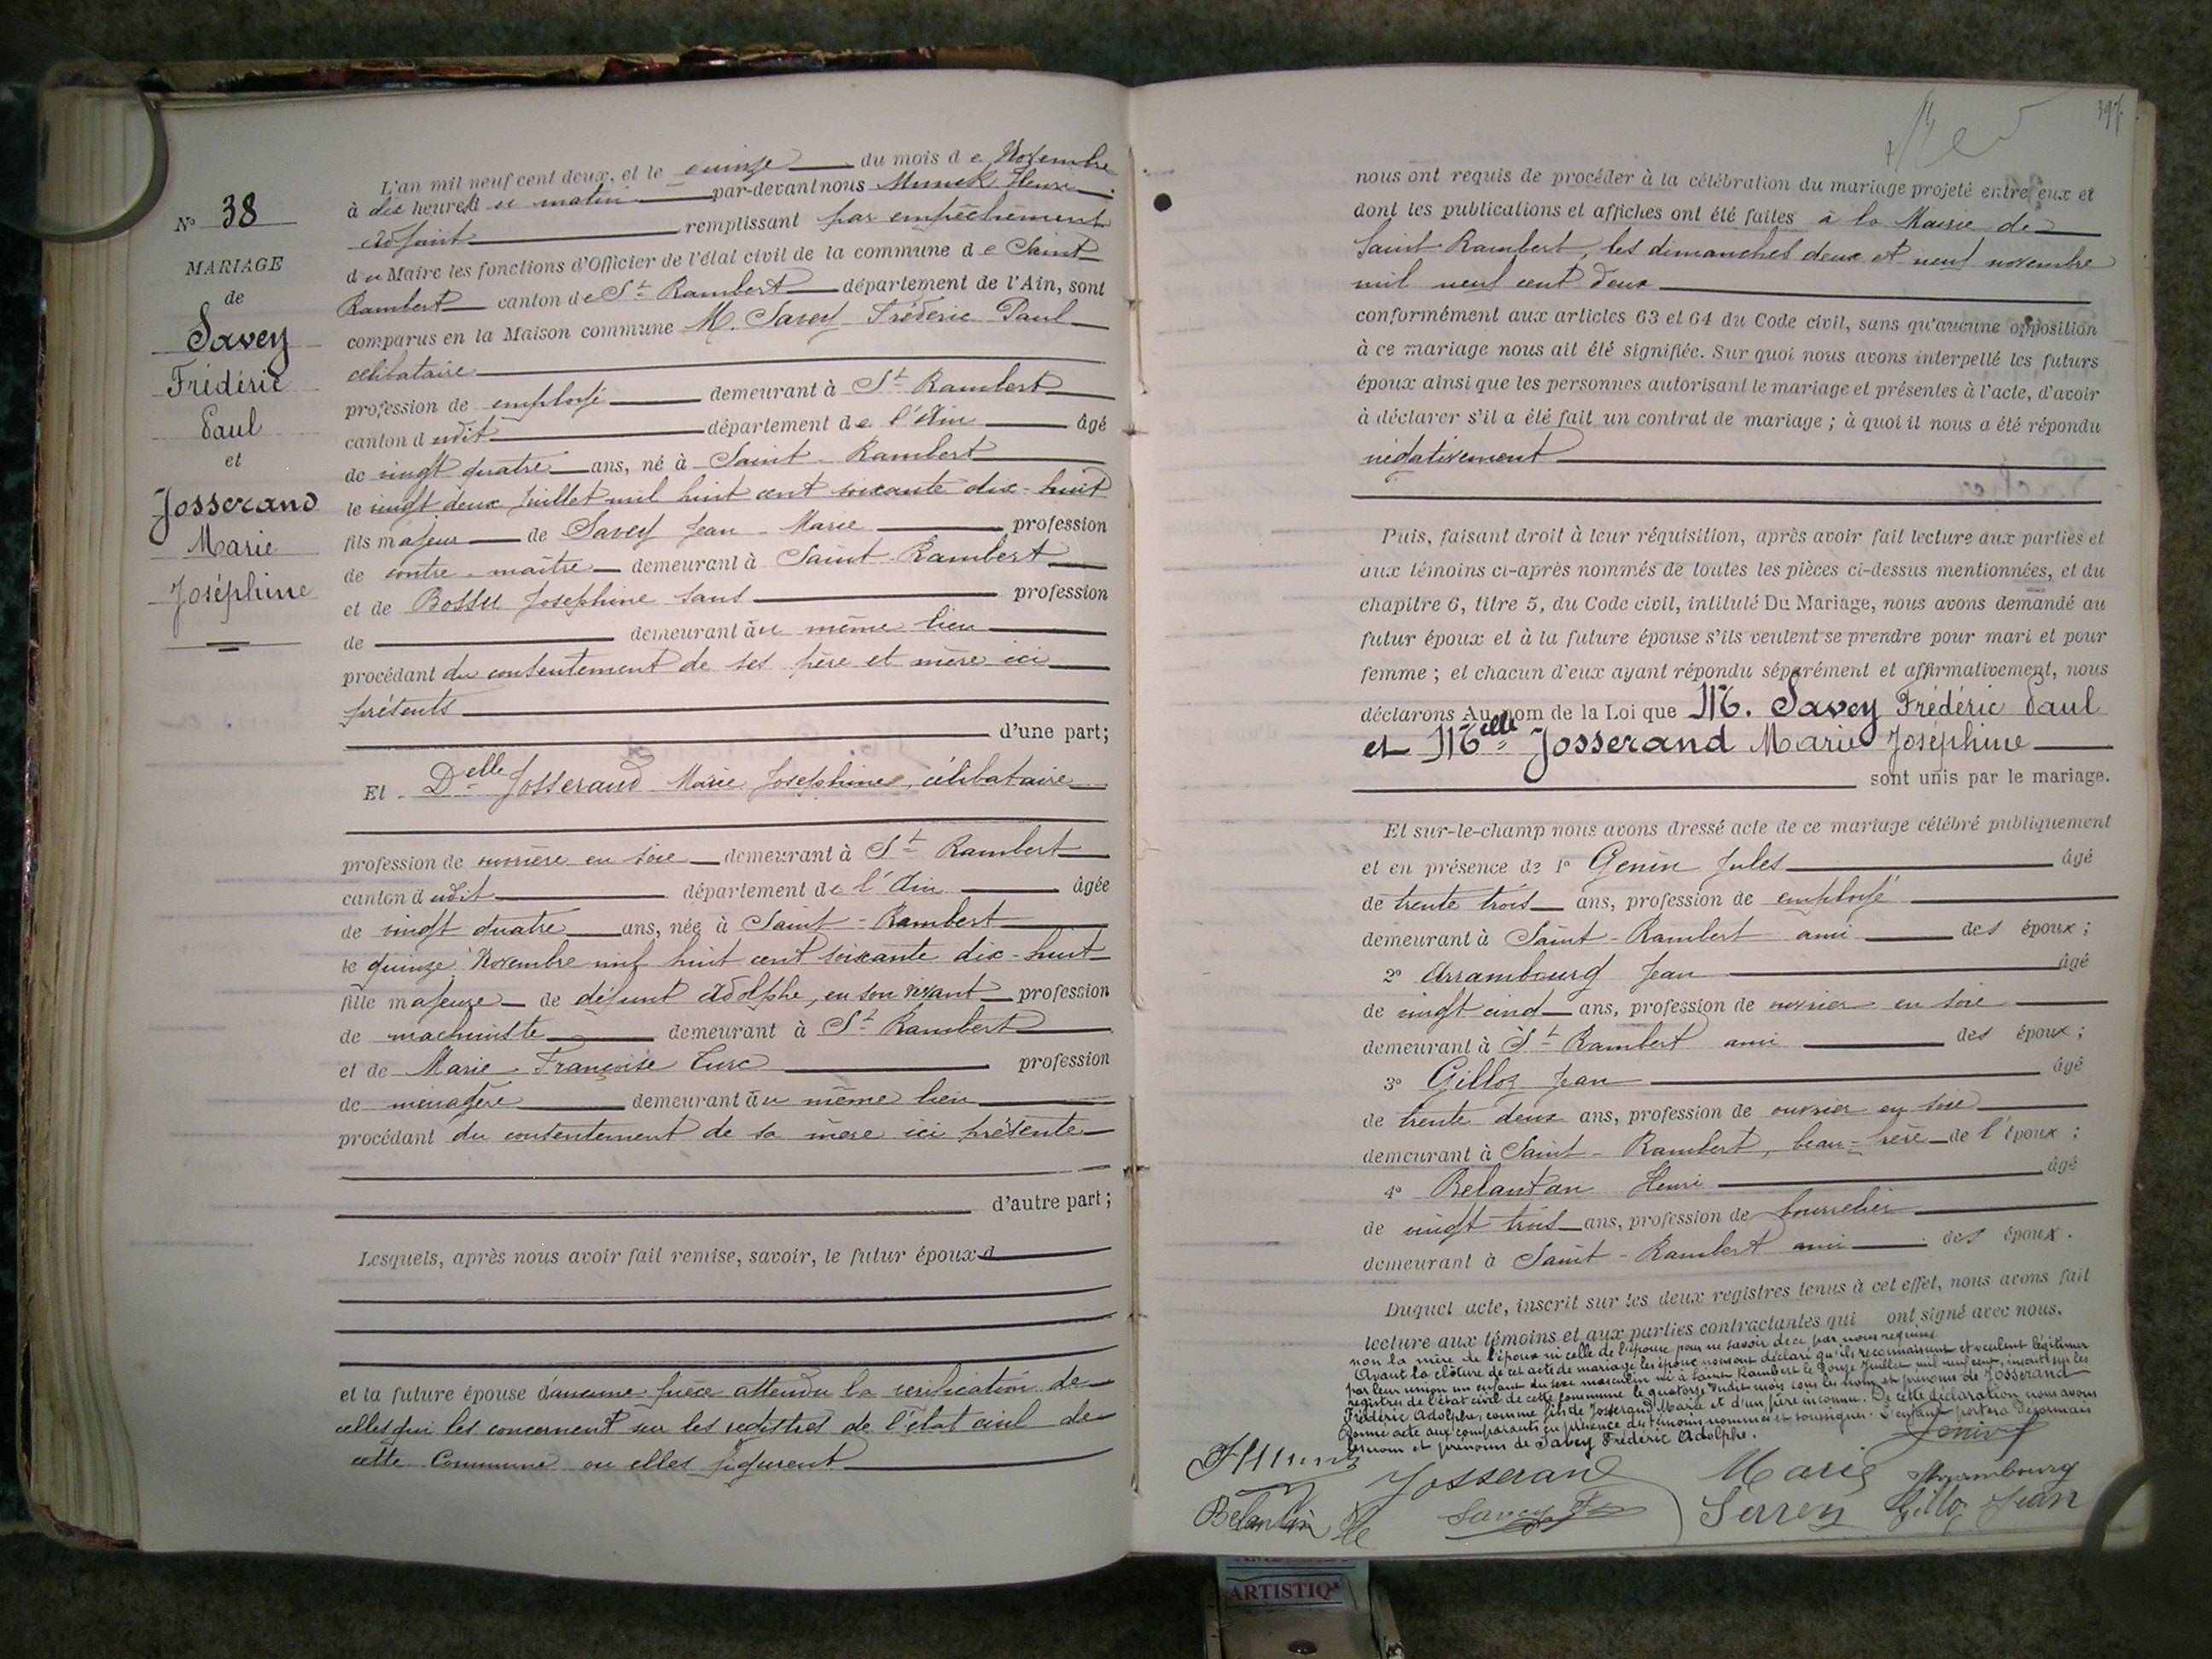 N° 38
MARIAGE
de
Savey
Frédéric
Paul
et
Josserand
Marie
Joséphine
L'an mil neuf cent deux, et le quinze du mois de Novembre
à dix heures du matin par-devant nous Munck Henri
adjoint remplissant par empêchement
du Maire les fonctions d'Officier de l'état civil de la commune de Saint
Rambert canton de St Rambert département de l'Ain, sont
comparus en la Maison commune M. Savey Frédéric Paul
célibataire
profession de employé demeurant à St Rambert
canton dudit département de l'Ain âgé
de vingt quatre ans, né à Saint-Rambert
le vingt deux Juillet mil huit cent soixante dix-huit
fils majeur de Savey Jean-Marie profession
de contre-maître demeurant à Saint-Rambert
et de Bossu Joséphine sans profession
de demeurant au même lieu
procédant du consentement de ses père et mère ici
présents
d'une part;
Et Delle Josserand Marie Joséphine, célibataire
profession de ouvrière en soie demeurant à St Rambert
canton dudit département de l'Ain âgée
de vingt quatre ans, née à Saint-Rambert
le quinze Novembre mil huit cent soixante dix-huit
fille majeure de défunt Adolphe, en son vivant profession
de machiniste demeurant à St Rambert
et de Marie Françoise Turc profession
de ménagère demeurant au même lieu
procédant du consentement de sa mère ici présente
d'autre part;
Lesquels, après nous avoir fait remise, savoir, le futur époux d
et la future épouse d'aucune pièce attendu la vérification de
celles qui les concernent sur les registres de l'état civil de
cette Commune où elles figurent
397
nous ont requis de procéder à la célébration du mariage projeté entre eux et
dont les publications et affiches ont été faites à la Mairie de
Saint-Rambert, les dimanches deux et neuf novembre
mil neuf cent deux
conformément aux articles 63 et 64 du Code civil, sans qu'aucune opposition
à ce mariage nous ait été signifiée. Sur quoi nous avons interpellé les futurs
époux ainsi que les personnes autorisant le mariage et présentes à l'acte, d'avoir
à déclarer s'il a été fait un contrat de mariage ; à quoi il nous a été répondu
négativement
Puis, faisant droit à leur réquisition, après avoir fait lecture aux parties et
aux témoins ci-après nommés de toutes les pièces ci-dessus mentionnées, et du
chapitre 6, titre 5, du Code civil, intitulé Du Mariage, nous avons demandé au
futur époux et à la future épouse s'ils veulent se prendre pour mari et pour
femme ; et chacun d'eux ayant répondu séparément et affirmativement, nous
déclarons Au nom de la Loi que M. Savey Frédéric Paul
et Melle Josserand Marie Joséphine
sont unis par le mariage.
Et sur-le-champ nous avons dressé acte de ce mariage célébré publiquement
et en présence de 1° Genin Jules âgé
de trente trois ans, profession de employé
demeurant à Saint-Rambert ami des époux ;
2° Arrambourg Jean âgé
de vingt cinq ans, profession de ouvrier en soie
demeurant à St Rambert ami des époux ;
3° Gilloz Jean âgé
de trente deux ans, profession de ouvrier en soie
demeurant à Saint-Rambert, beau-frère de l'époux ;
4° Belantan Henri âgé
de vingt trois ans, profession de bourrelier
demeurant à Saint-Rambert ami des époux.
Duquel acte, inscrit sur les deux registres tenus à cet effet, nous avons fait
lecture aux témoins et aux parties contractantes qui ont signé avec nous.
non la mère de l'époux ni celle de l'épouse pour ne savoir de ce par nous requises
Avant la clôture de cet acte de mariage les époux nous ont déclaré qu'ils reconnaissent et veulent légitimer
par leur union un enfant du sexe masculin né à Saint Rambert le douze Juillet mil neuf cent, inscrit sur les
registres de l'état civil de cette commune le quatorze dudit mois sous les nom et prénoms de Josserand
Frédéric Adolphe, comme fils de Josserand Marie et d'un père inconnu. De cette déclaration nous avons
donné acte aux comparants en présence des témoins nommés et soussignés. L'enfant portera désormais
les nom et prénoms de Savey Frédéric Adolphe.
Josserand Marie Arrambourg
Savey Gilloz Jean
ARTISTIQ